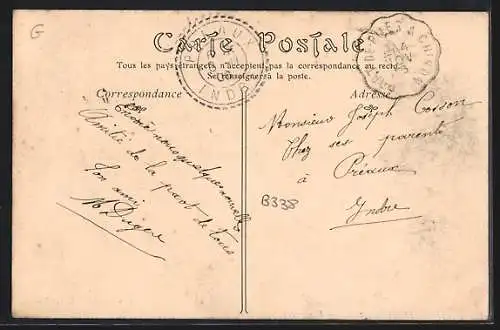 G
Carte Postale
Tous les pays étrangers n'acceptent pas la correspondance au recto.
Se renseigner à la poste.
Correspondance
Adresse
INDRE
nous quelques nouvelles
Amitié de la part de tous
Ton ami
Monsieur Joseph
Chez ses parents
à Préaux
Indre
B338